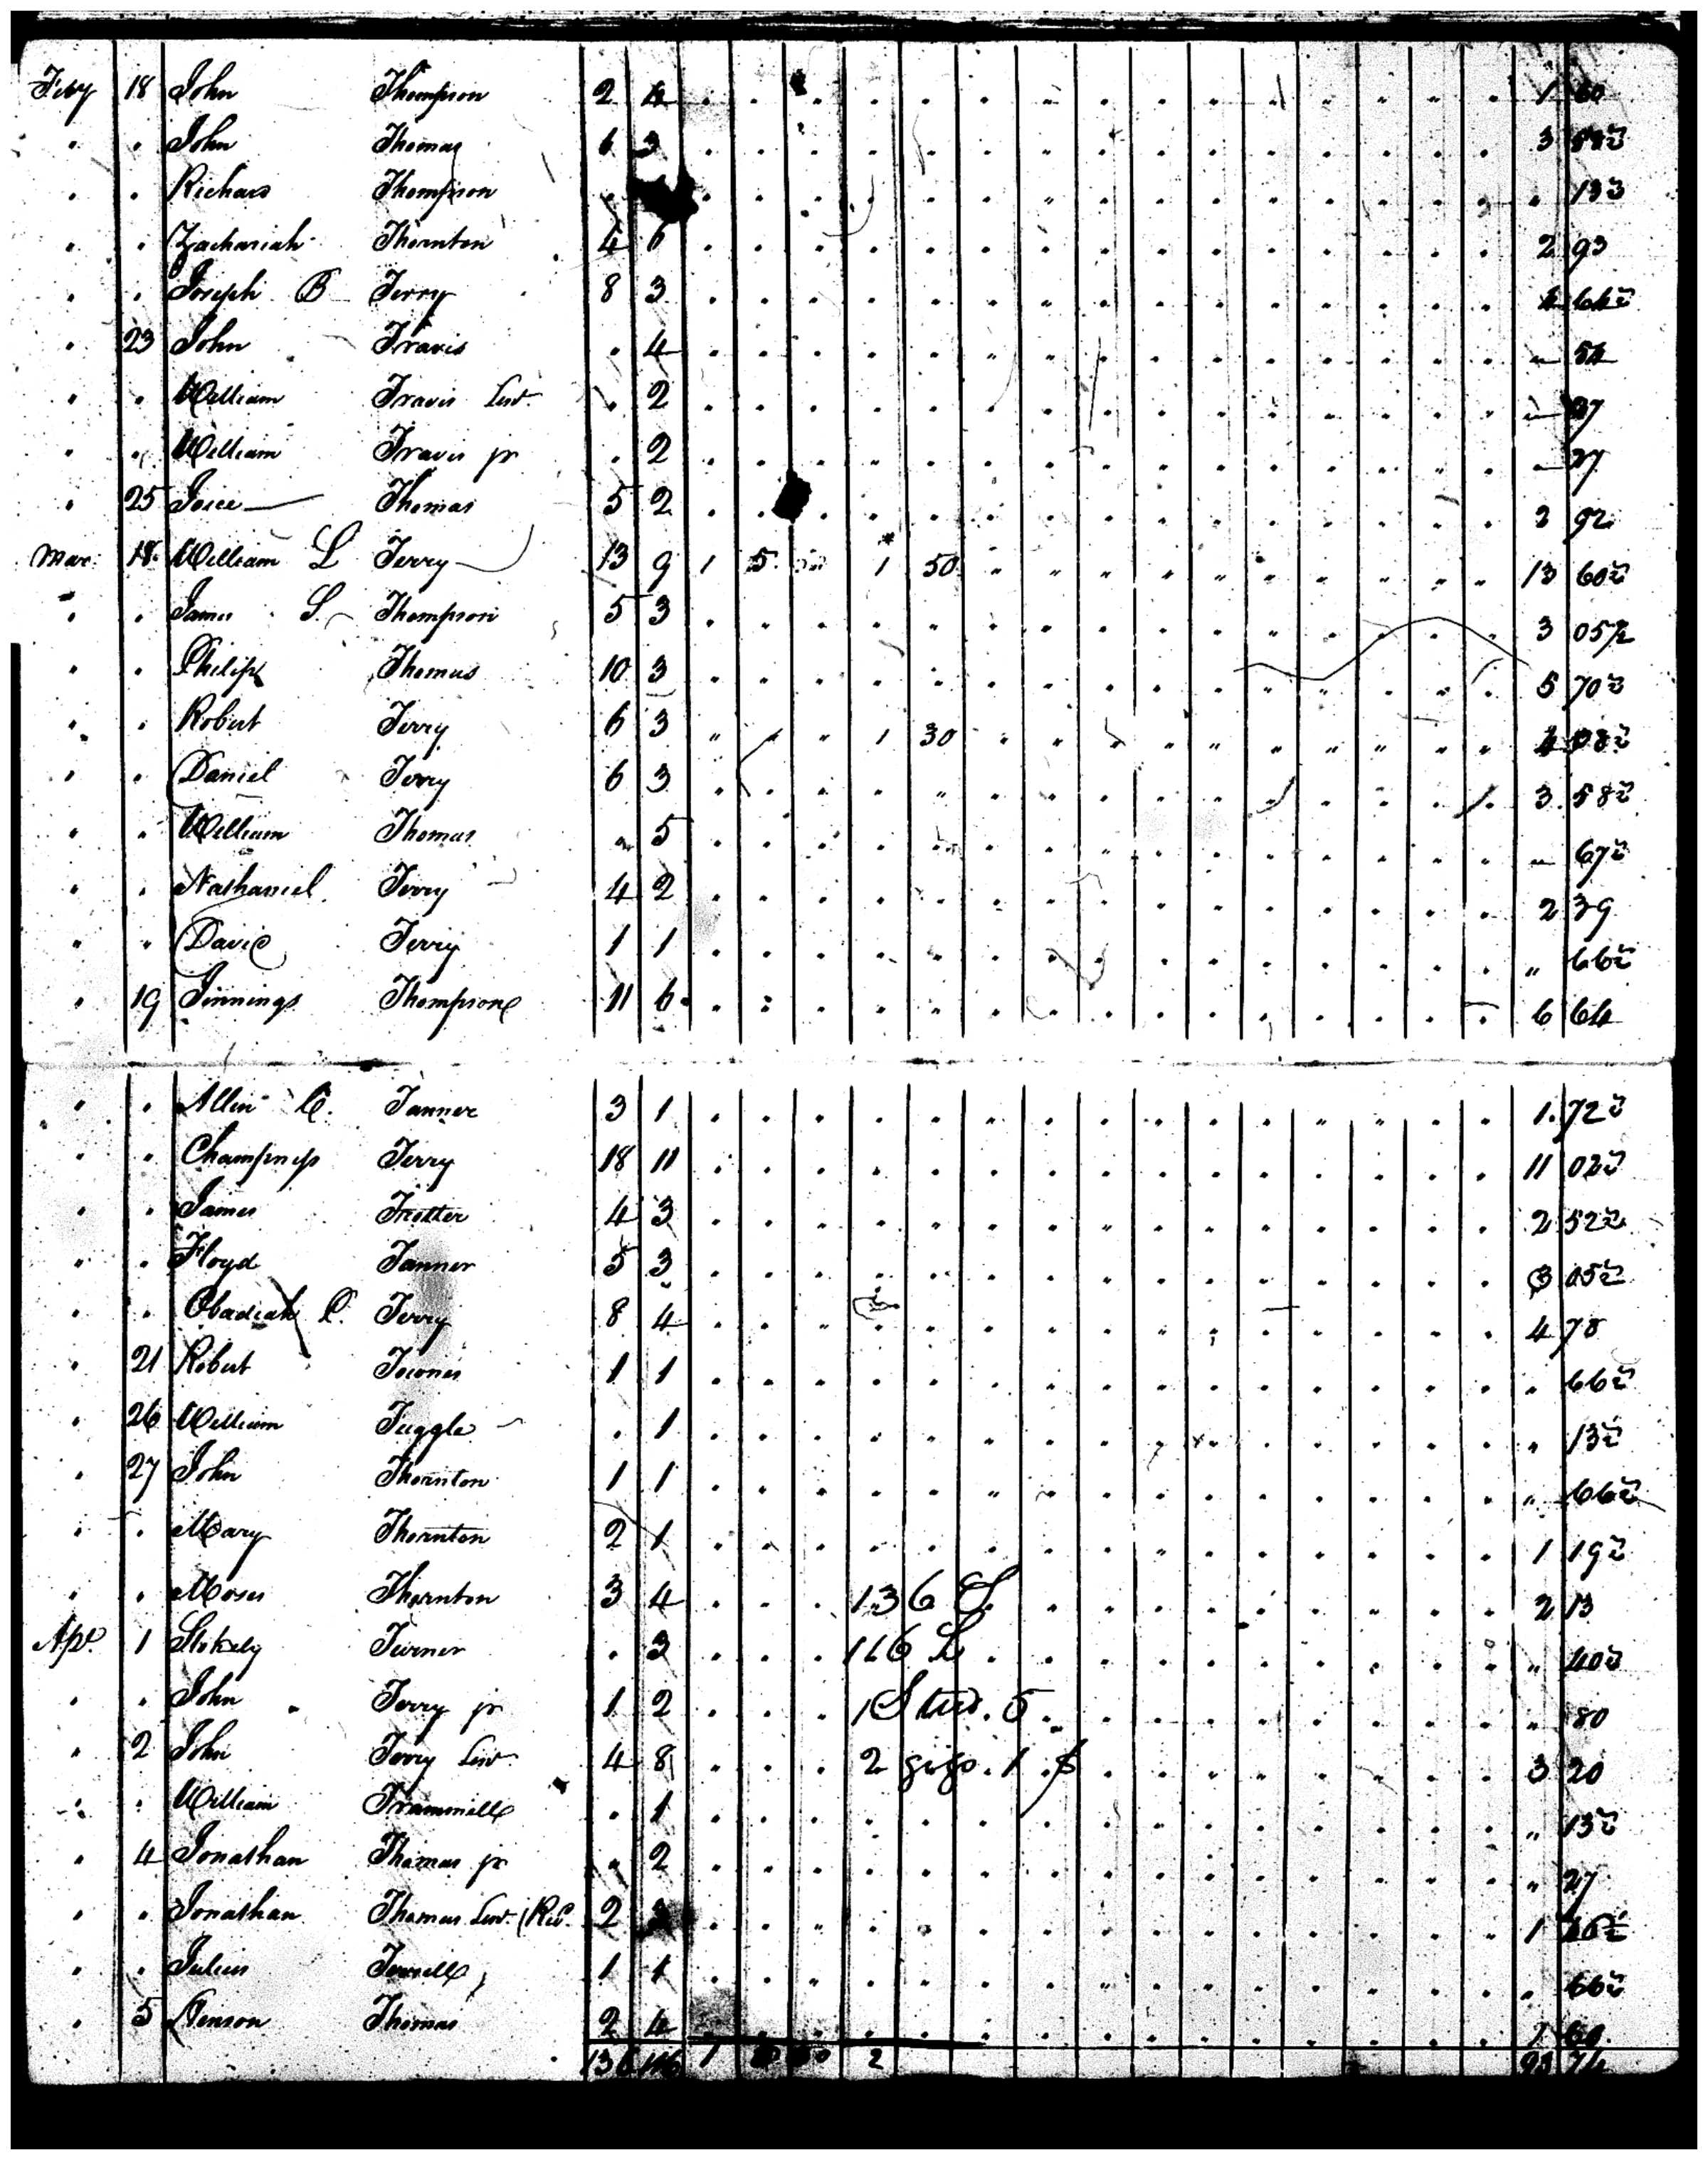 Feby 18 John Thompson 2 4 1 60
" " John Thomas 6 3 3 58½
" " Richard Thompson " 13½
" " Zachariah Thornton 4 6 2 93
" " Joseph B Terry 8 3 4 64½
" 23 John Travis " 4 " 54
" " William Travis Senr. " 2 " 27
" " William Travis jr " 2 " 27
" 25 Joice Thomas 5 2 2 92
Mar: 18 William L Terry 13 9 1 5 1 50 13 60½
" " James S. Thompson 5 3 3 05½
" " Philip Thomas 10 3 5 70½
" " Robert Terry 6 3 " " " 1 30 4 08½
" " Daniel Terry 6 3 3 58½
" " William Thomas " 5 " 67½
" " Nathaniel Terry 4 2 2 39
" " David Terry 1 1 " 66½
" 19 Jinnings Thompson 11 6 6 64
" " Allen C. Tanner 3 1 1 72½
" " Champness Terry 18 11 11 02½
" " James Trotter 4 3 2 52½
" " Floyd Tanner 5 3 3 05½
" " Obadiah P. Terry 8 4 4 78
" 21 Robert Townes 1 1 " 66½
" 26 William Tuggle " 1 " 13½
" 27 John Thornton 1 1 " 66½
" " Mary Thornton 2 1 1 19½
" " Moses Thornton 3 4 136 S. 2 13
Apl. 1 Stokely Turner " 3 116 L " 40½
" " John Terry jr 1 2 1 Stud. 5 " 80
" 2 John Terry Senr 4 8 2 gigs. 1 $ 3 20
" " William Trammell " 1 " 13½
" 4 Jonathan Thomas jr " 2 " 27
" " Jonathan Thomas Senr. 2 3 1
" " Julius Terrell 1 1 " 66½
" 5 Penson Thomas 2 4 1 60
136 116 1 2 93 74